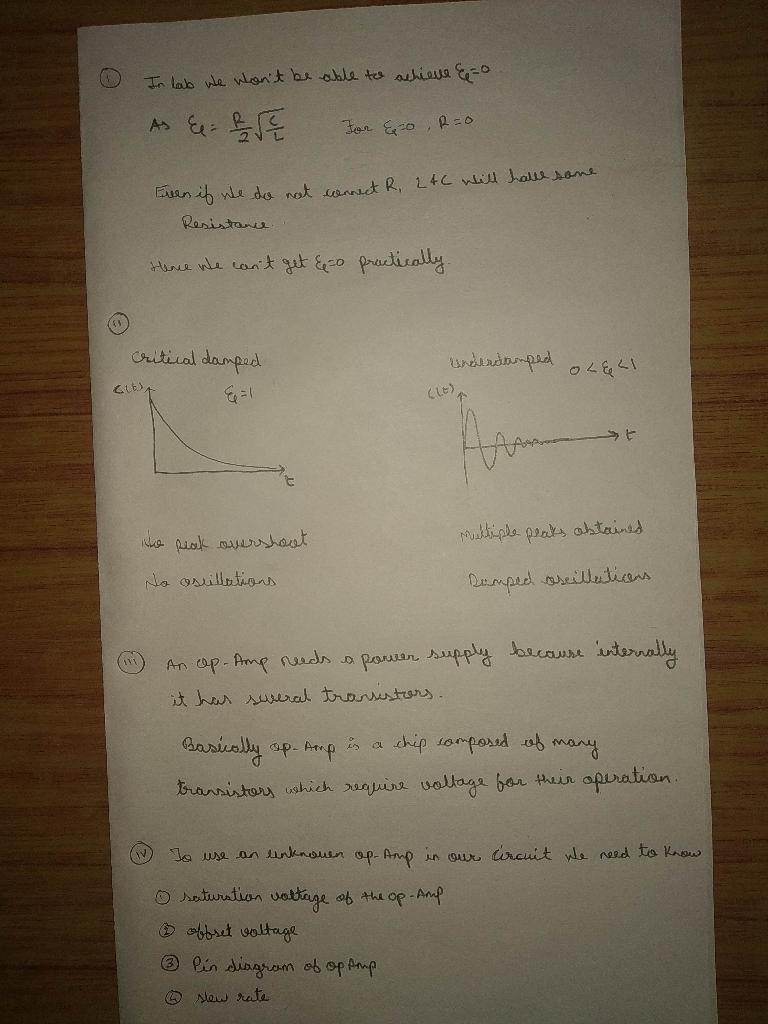 (i) In lab we won't be able to achieve ξ=0
As ξ = R/2 √(C/L) For ξ=0, R=0
Even if we do not connect R, L & C will have some
Resistance.
Hence we can't get ξ=0 practically.
(ii)
Critical damped
ξ=1
c(t)
t
No peak overshoot
No oscillations
Underdamped 0<ξ<1
c(t)
t
Multiple peaks obtained
Damped oscillations
(iii) An op-Amp needs a power supply because internally
it has several transistors.
Basically op-Amp is a chip composed of many
transistors which require voltage for their operation.
(iv) To use an unknown op-Amp in our circuit we need to know
① saturation voltage of the op-Amp
② offset voltage
③ Pin diagram of op Amp
④ slew rate